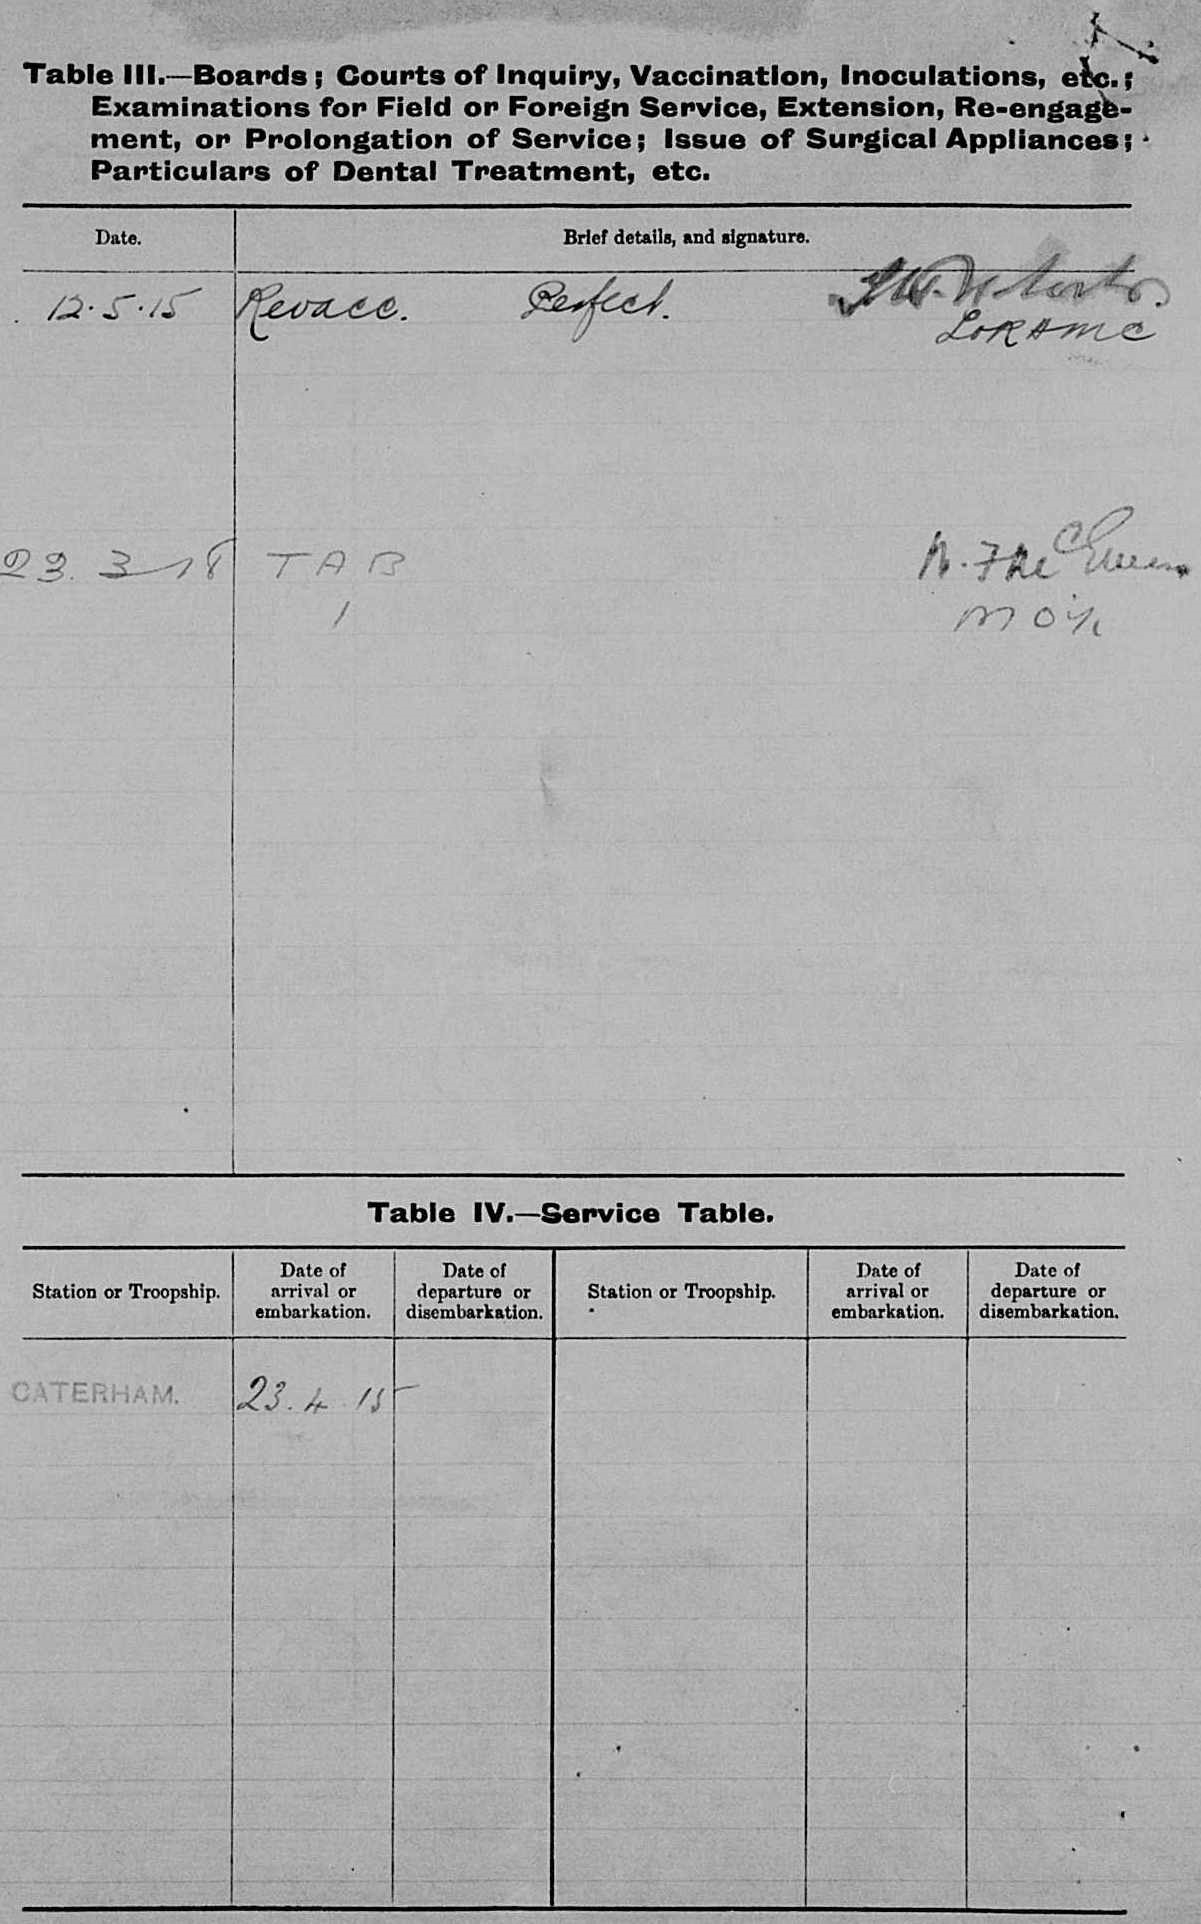 Table III.—Boards; Courts of Inquiry, Vaccination, Inoculations, etc.;
Examinations for Field or Foreign Service, Extension, Re-engage-
ment, or Prolongation of Service; Issue of Surgical Appliances;
Particulars of Dental Treatment, etc.
Date. Brief details, and signature.
12.5.15 Revacc. Perfect.
Lt RAMC
23.3-18 TAB
1
MO i/c
Table IV.—Service Table.
Station or Troopship. Date of arrival or embarkation. Date of departure or disembarkation. Station or Troopship. Date of arrival or embarkation. Date of departure or disembarkation.
CATERHAM. 23.4.15